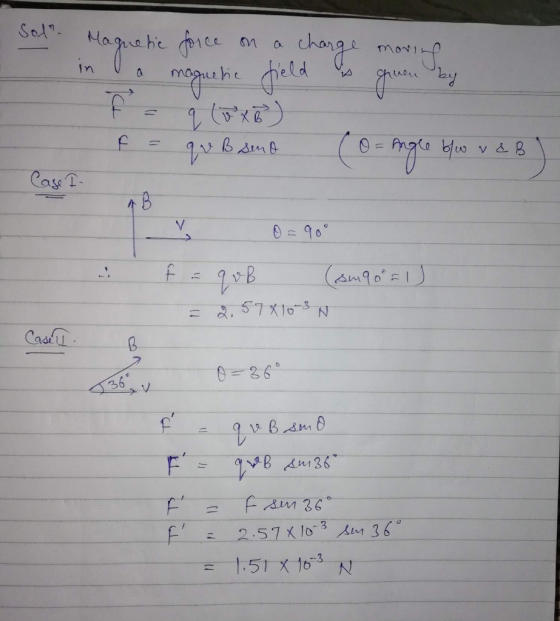 Solⁿ. Magnetic force on a charge moving
in a magnetic field is given by
F⃗ = q (v⃗ × B⃗)
F = qvB sinθ (θ = Angle b/w v & B)
Case I.
B
v
θ = 90°
∴ F = qvB (sin90° = 1)
= 2.57 × 10⁻³ N
Case II.
B
36°
v
θ = 36°
F' = qvB sinθ
F' = qvB sin36°
F' = F sin36°
F' = 2.57 × 10⁻³ sin 36°
= 1.51 × 10⁻³ N